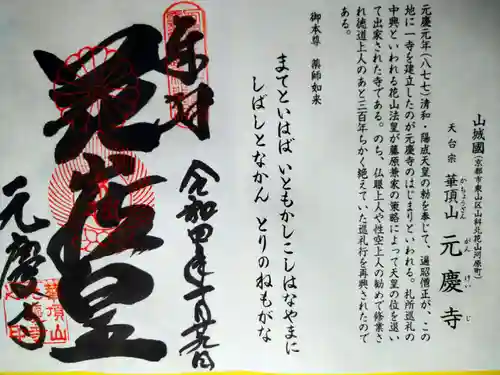 山城國(京都市東山区山科北花山河原町)
天台宗 華頂山 元慶寺
かちょうざん がんけいじ
元慶元年(八七七)清和・陽成天皇の勅を奉じて、遍昭僧正が、この
地に一寺を建立したのが元慶寺のはじまりといわれる。札所巡礼の
中興といわれる花山法皇が藤原兼家の策略によって天皇の位を退い
て出家された寺である。のち、仏眼上人や性空上人の勧めで修業さ
れ徳道上人のあと三百年ちかく絶えていた巡礼行を再興されたので
ある。
御本尊 薬師如来
まてといはば いともかしこしはなやまに
しばしとなかん とりのねもがな
奉拝
令和四年一月廿九日
皇
元慶寺
華頂山